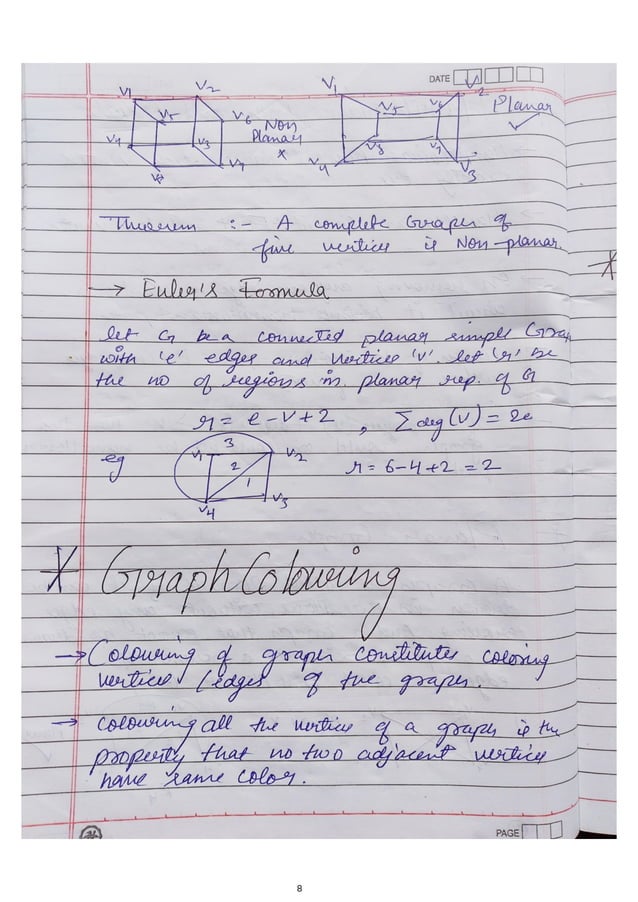 DATE
V1 V2 V5 V6 V4 V3 V7 V8
Non
Planar
×
V1 2 V5 V6 V8 V7 V4 V3
Planar
Theorem :- A complete Graph of
five vertices is Non-planar.
→ Euler's Formula
let G be a connected planar simple Grap
with 'e' edges and vertices 'v'. let 'r' be
the no of regions in planar rep. of G
r = e-v+2 , Σdeg(v) = 2e
eg 3 V1 V2 2 1 V4 V3 r = 6-4+2 = 2
Graph Colouring
→ Colouring of graph constitutes coloring
vertices / edges of the graph.
→ colouring all the vertices of a graph is the
property that no two adjacent vertices
have same color.
PAGE
8